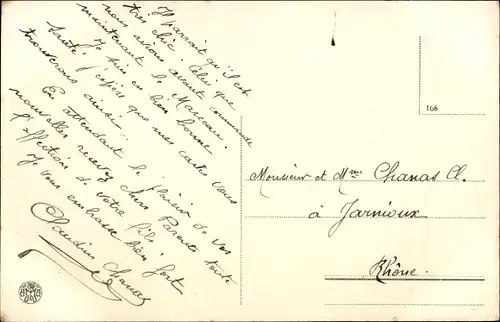 Il parrait qu'il est
très chic. Celui que
nous avions avant commande
maintenant le Marceau.
Je suis en bien bonne
santé j'espère que mes cartes vous
trouverons ainsi.
En attendant le plaisir de vos
nouvelles recevez chers Parents toute
l'affection de votre fils.
Je vous embrasse bien fort
Claudius Chanas
166
Monsieur et Mme Chanas Cl.
à Jarnioux
Rhône.